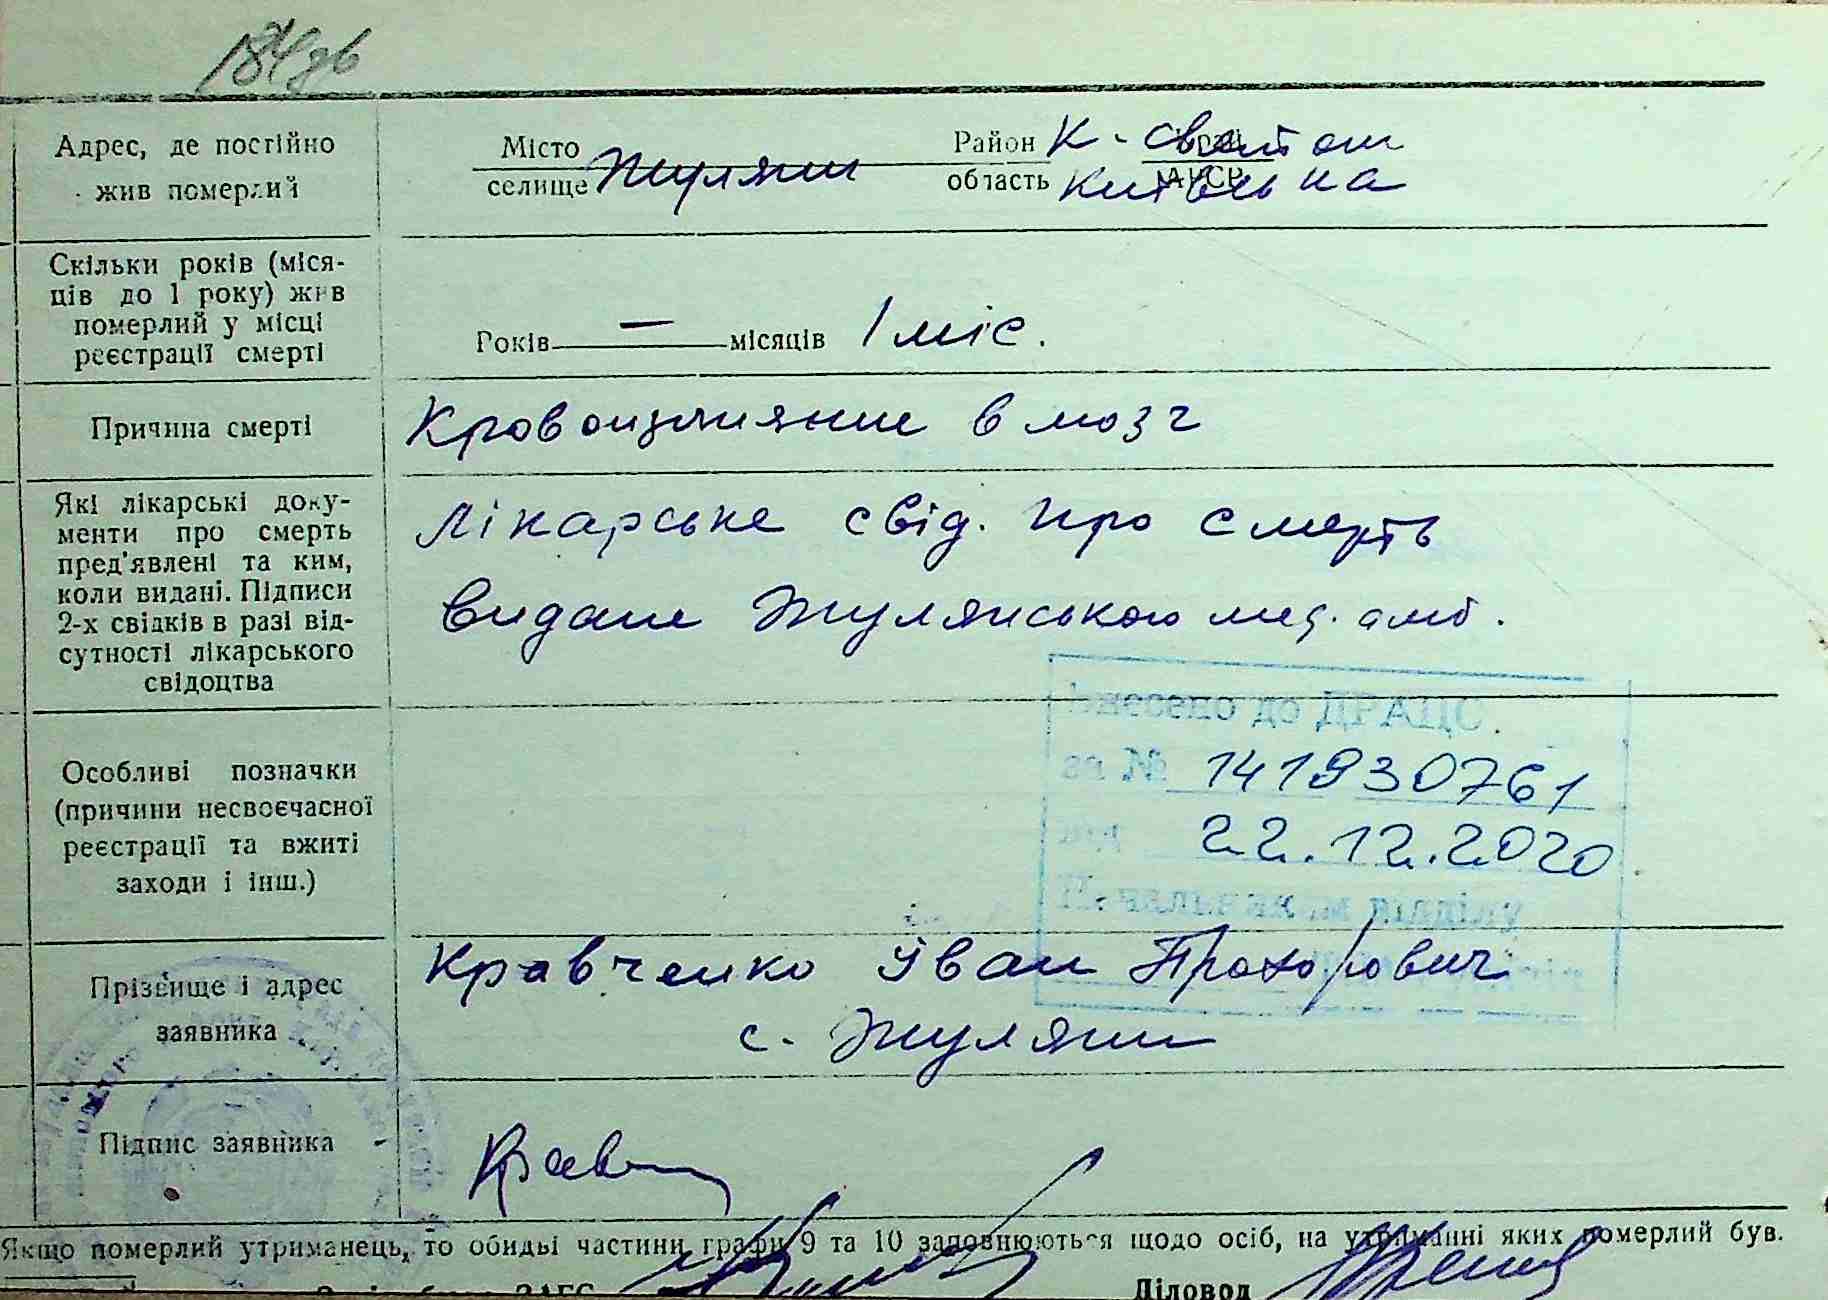 184
Адрес, де постійно
жив померлий
Місто
селище
Жуляни
Район
область
К-Святош
Київська
Скільки років (міся-
ців до 1 року) жив
померлий у місці
реєстрації смерті
Років — місяців 1 міс.
Причина смерті
Кровоизлияние в мозг
Які лікарські доку-
менти про смерть
пред'явлені та ким,
коли видані. Підписи
2-х свідків в разі від-
сутності лікарського
свідоцтва
Лікарське свід. про смерть
видане Жулянською мед. амб.
Особливі позначки
(причини несвоєчасної
реєстрації та вжиті
заходи і інш.)
Внесено до ДРАЦС
за № 1419930761
від 22.12.2020
Начальником відділу
Прізвище і адрес
заявника
Кравченко Іван Прохорович
с. Жуляни
Підпис заявника
Крав
Якщо померлий утриманець, то обидві частини графи 9 та 10 заповнюються щодо осіб, на утриманні яких померлий був.
ЗАГС
Діловод